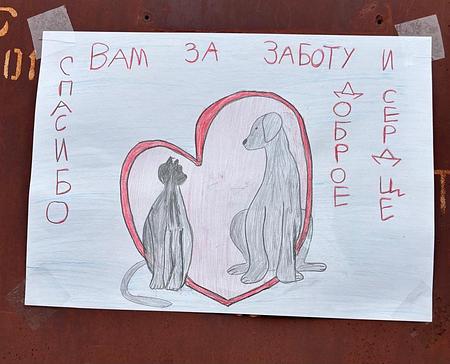 СПАСИБО
ВАМ ЗА ЗАБОТУ И
ДОБРОЕ
СЕРДЦЕ